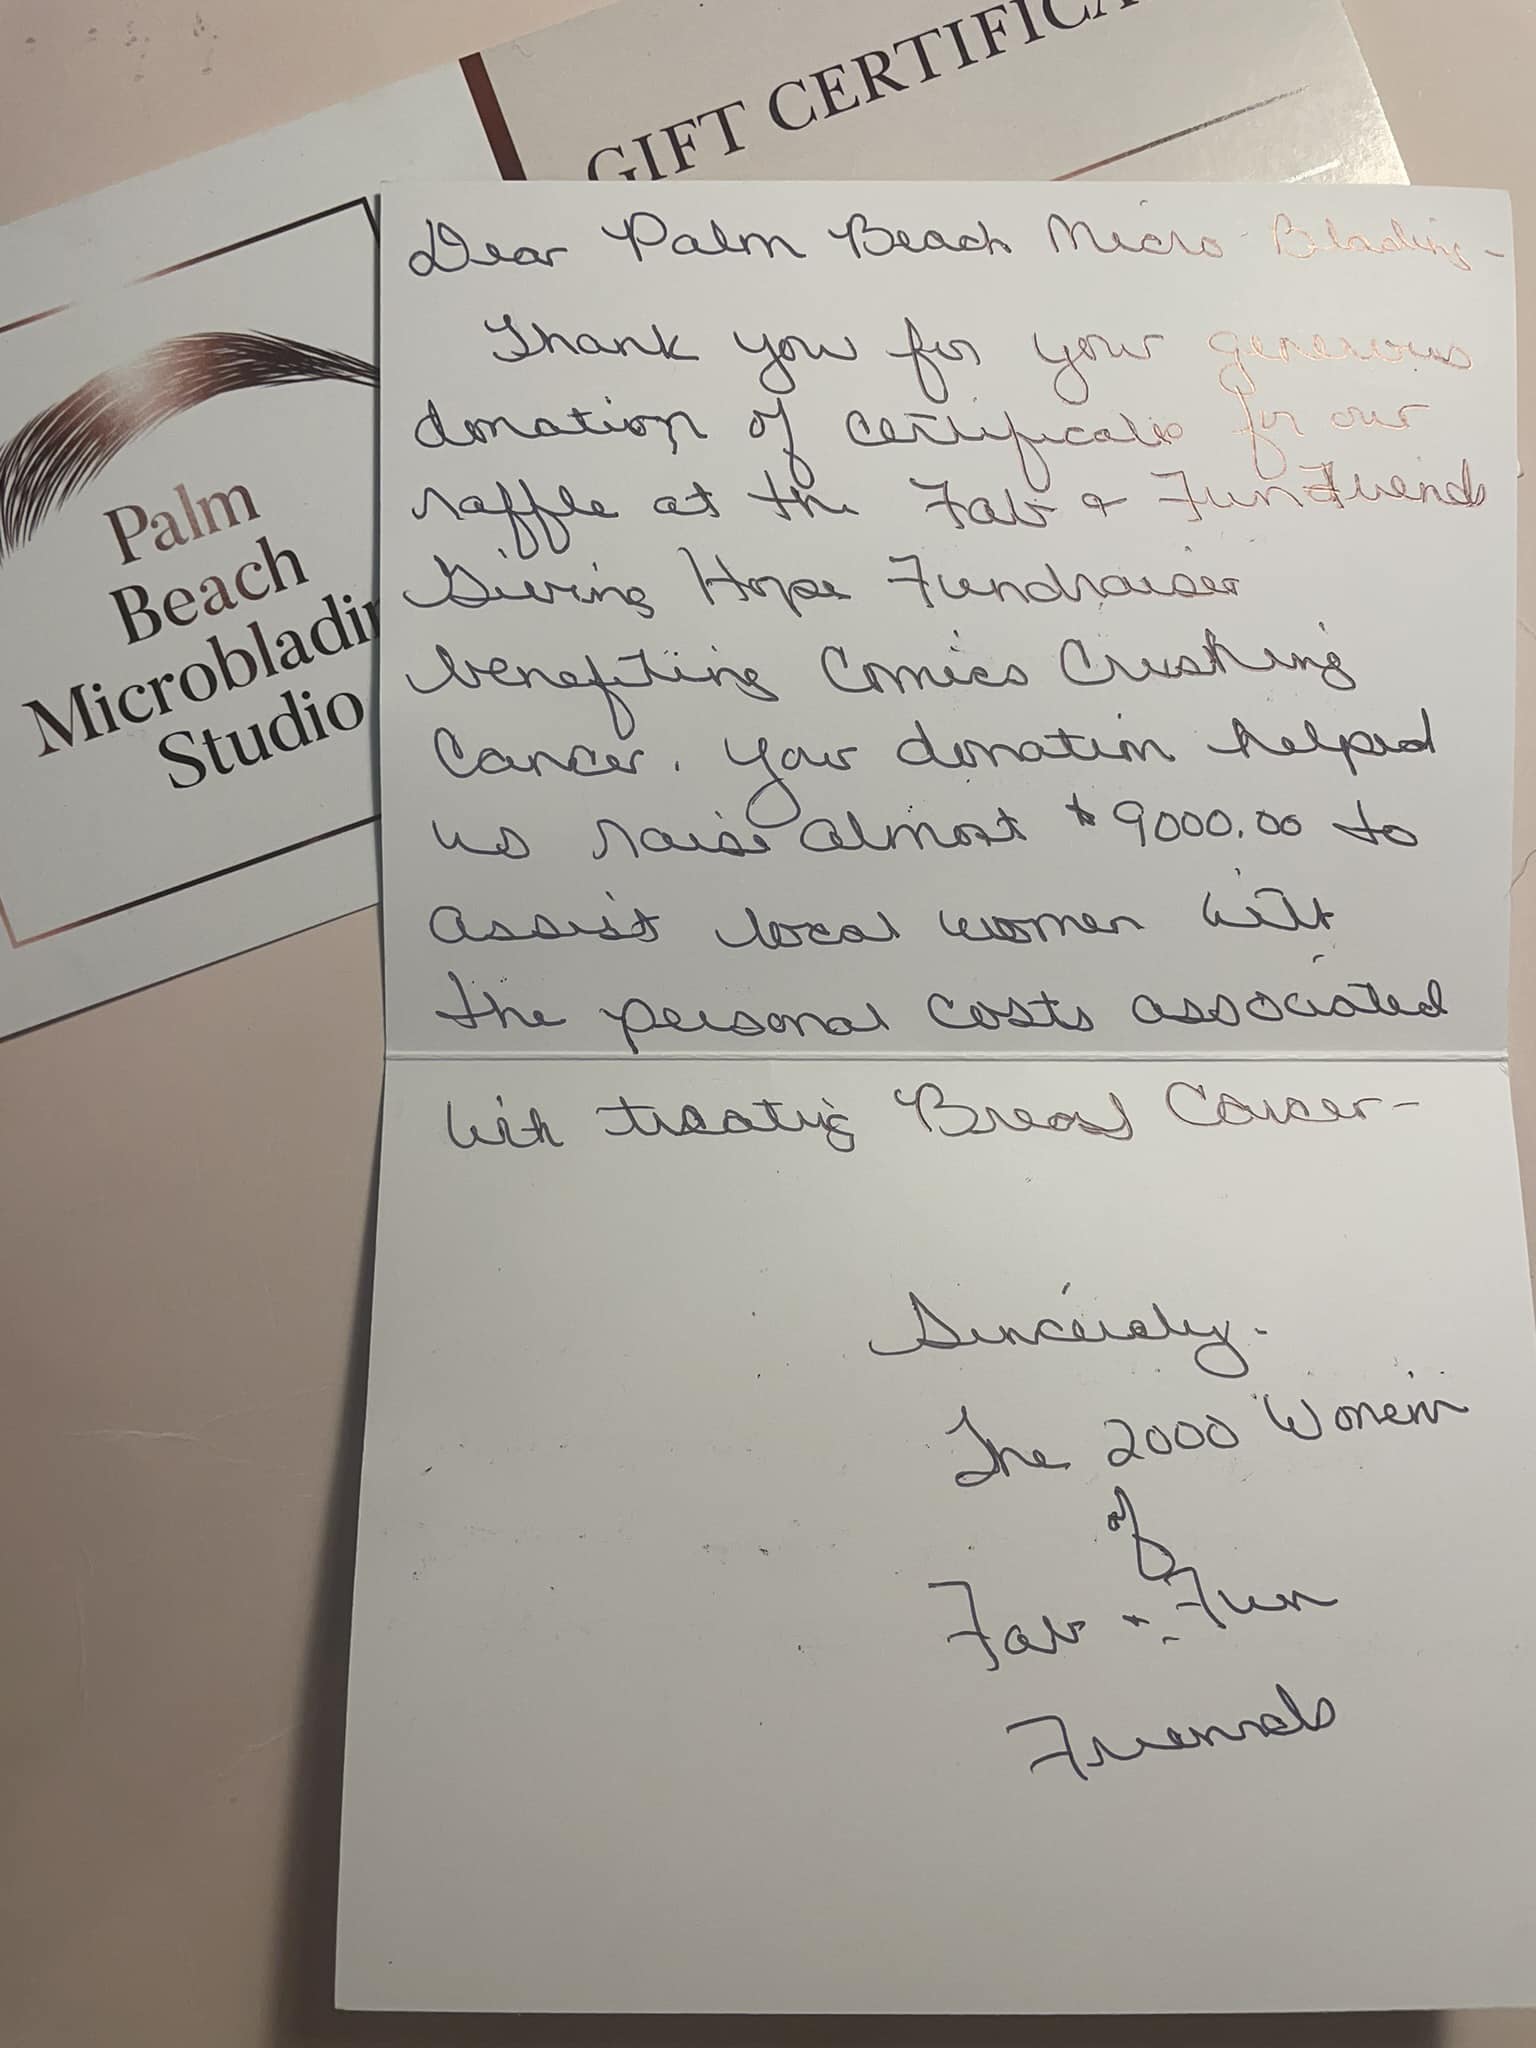 GIFT CERTIFICA
Palm
Beach
Microbladin
Studio
Dear Palm Beach Micro-Blading-
Thank you for your generous
donation of certificates for our
raffle at the Fab & Fun Friends
Giving Hope Fundraiser
benefiting Comics Crushing
Cancer. Your donation helped
us raise almost $9000.00 to
assist local women with
the personal costs associated
with treating Breast Cancer-
Sincerely-
The 2000 Women
of
Fab & Fun
Friends